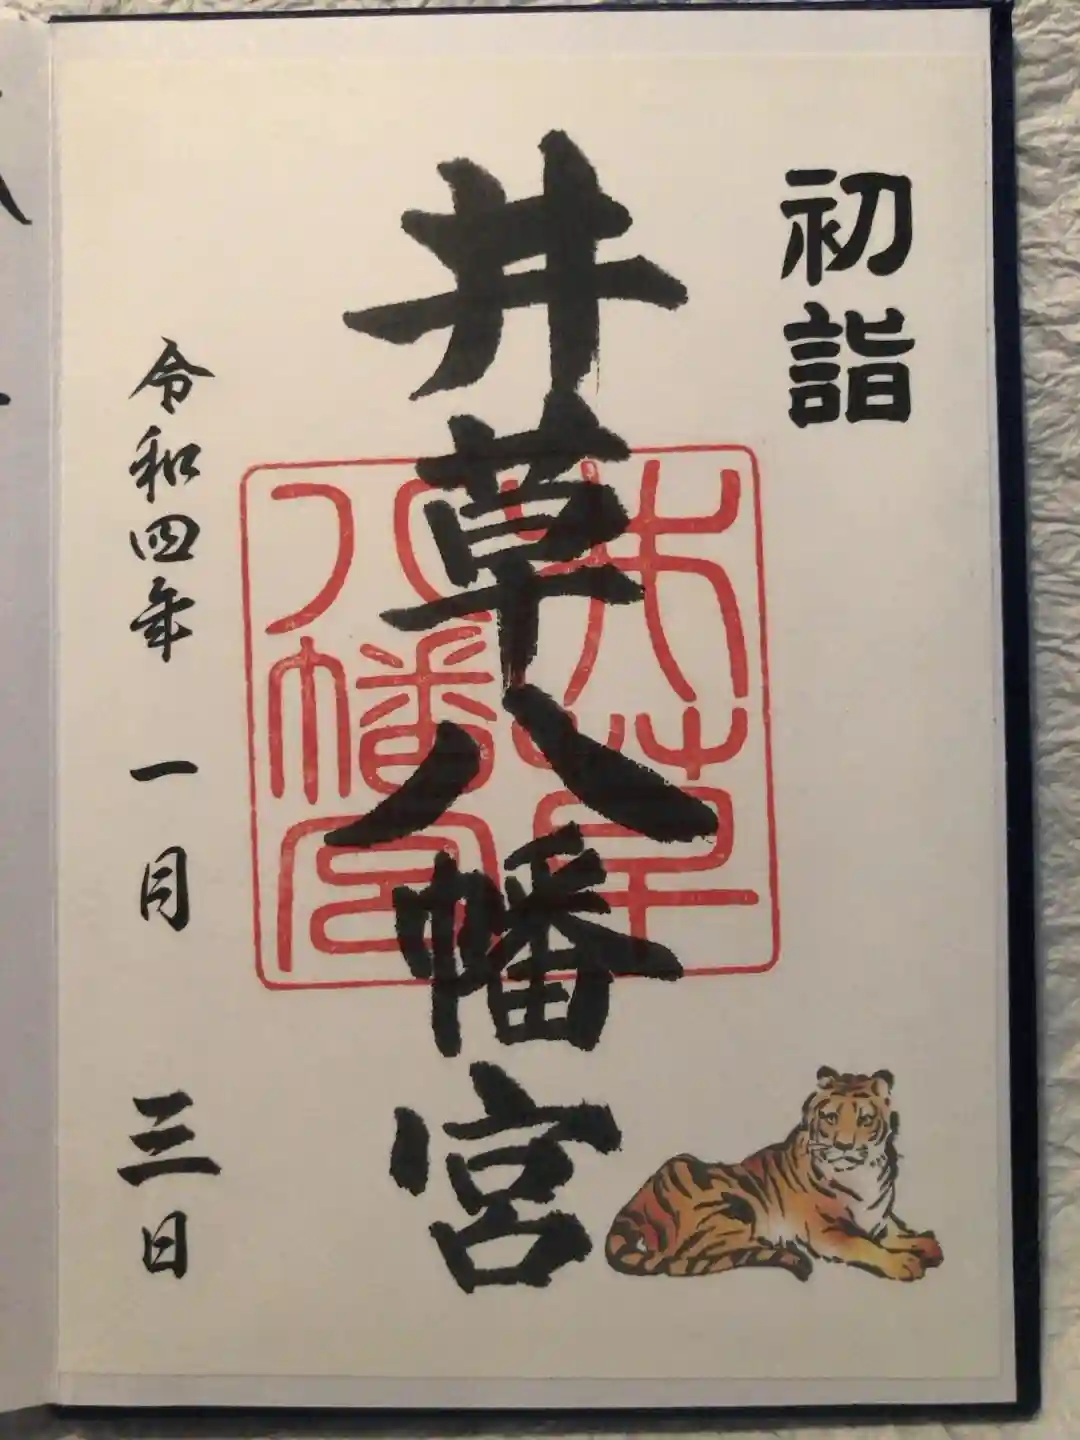 初詣
井草八幡宮
令和四年 一月 三日
井草
八幡宮